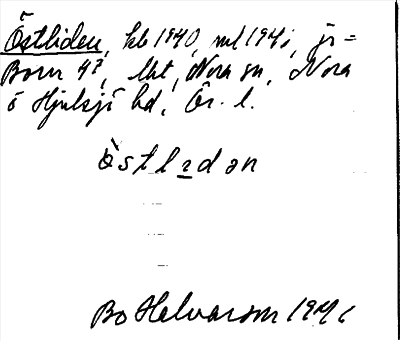 Östliden, kb 1940, ml 1941, jr=
Born 4?, lht, Nora sn, Nora
o Hjulsjö hd, Ör. l.
òstlɩdən
Bo Helvarson 1941